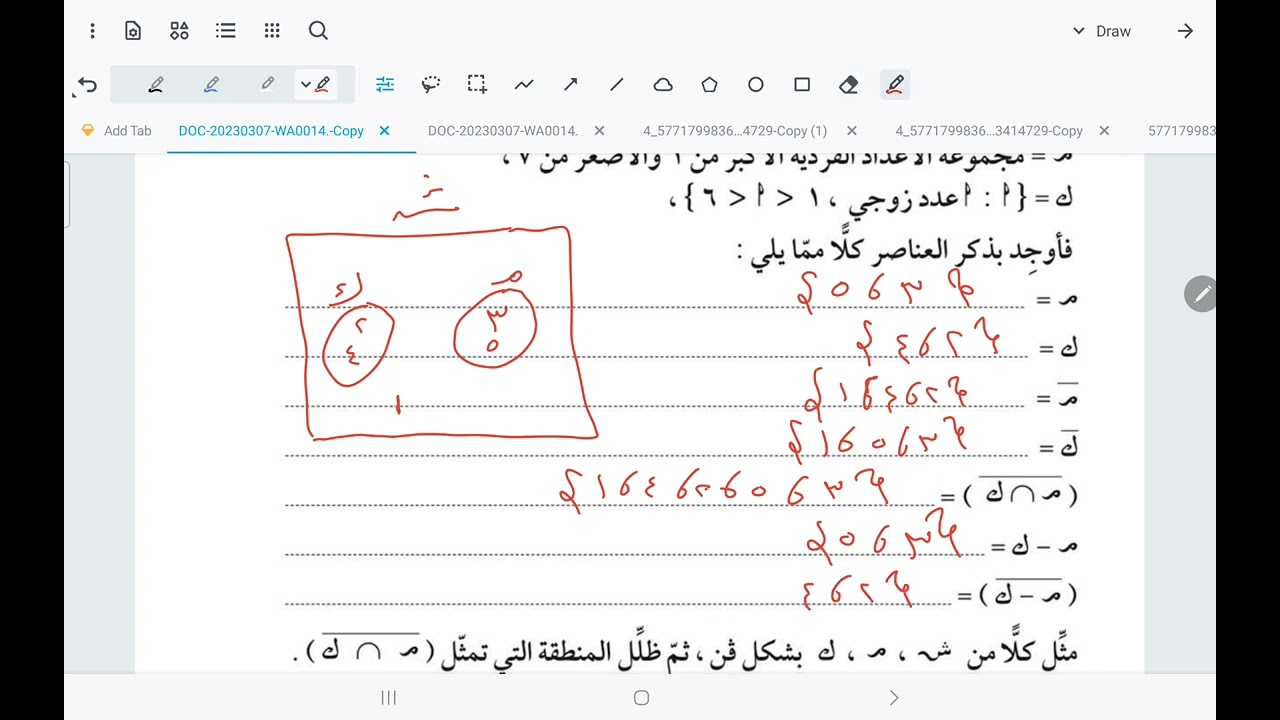 Draw
Add Tab
DOC-20230307-WA0014.-Copy
DOC-20230307-WA0014.
4_5771799836...4729-Copy (1)
4_5771799836...3414729-Copy
577179983
م = مجموعة الأعداد الفردية الأكبر من ١ والأصغر من ٧ ،
ك = {أ : أ عدد زوجي ، ١ < أ < ٦} ،
فأوجِد بذكر العناصر كلًّا ممّا يلي :
م = {٣ ، ٥}
ك = {٢ ، ٤}
م̅ = {٢ ، ٤ ، ١}
ك̅ = {٣ ، ٥ ، ١}
(م ∩ ك)‾ = {٣ ، ٥ ، ٢ ، ٤ ، ١}
م – ك = {٣ ، ٥}
(م – ك)‾ = {٢ ، ٤
ش
م
ك
٣
٥
٢
٤
١
مثِّل كلًّا من ش ، م ، ك بشكل ڤن ، ثمّ ظلِّل المنطقة التي تمثّل (م ∩ ك)‾ .